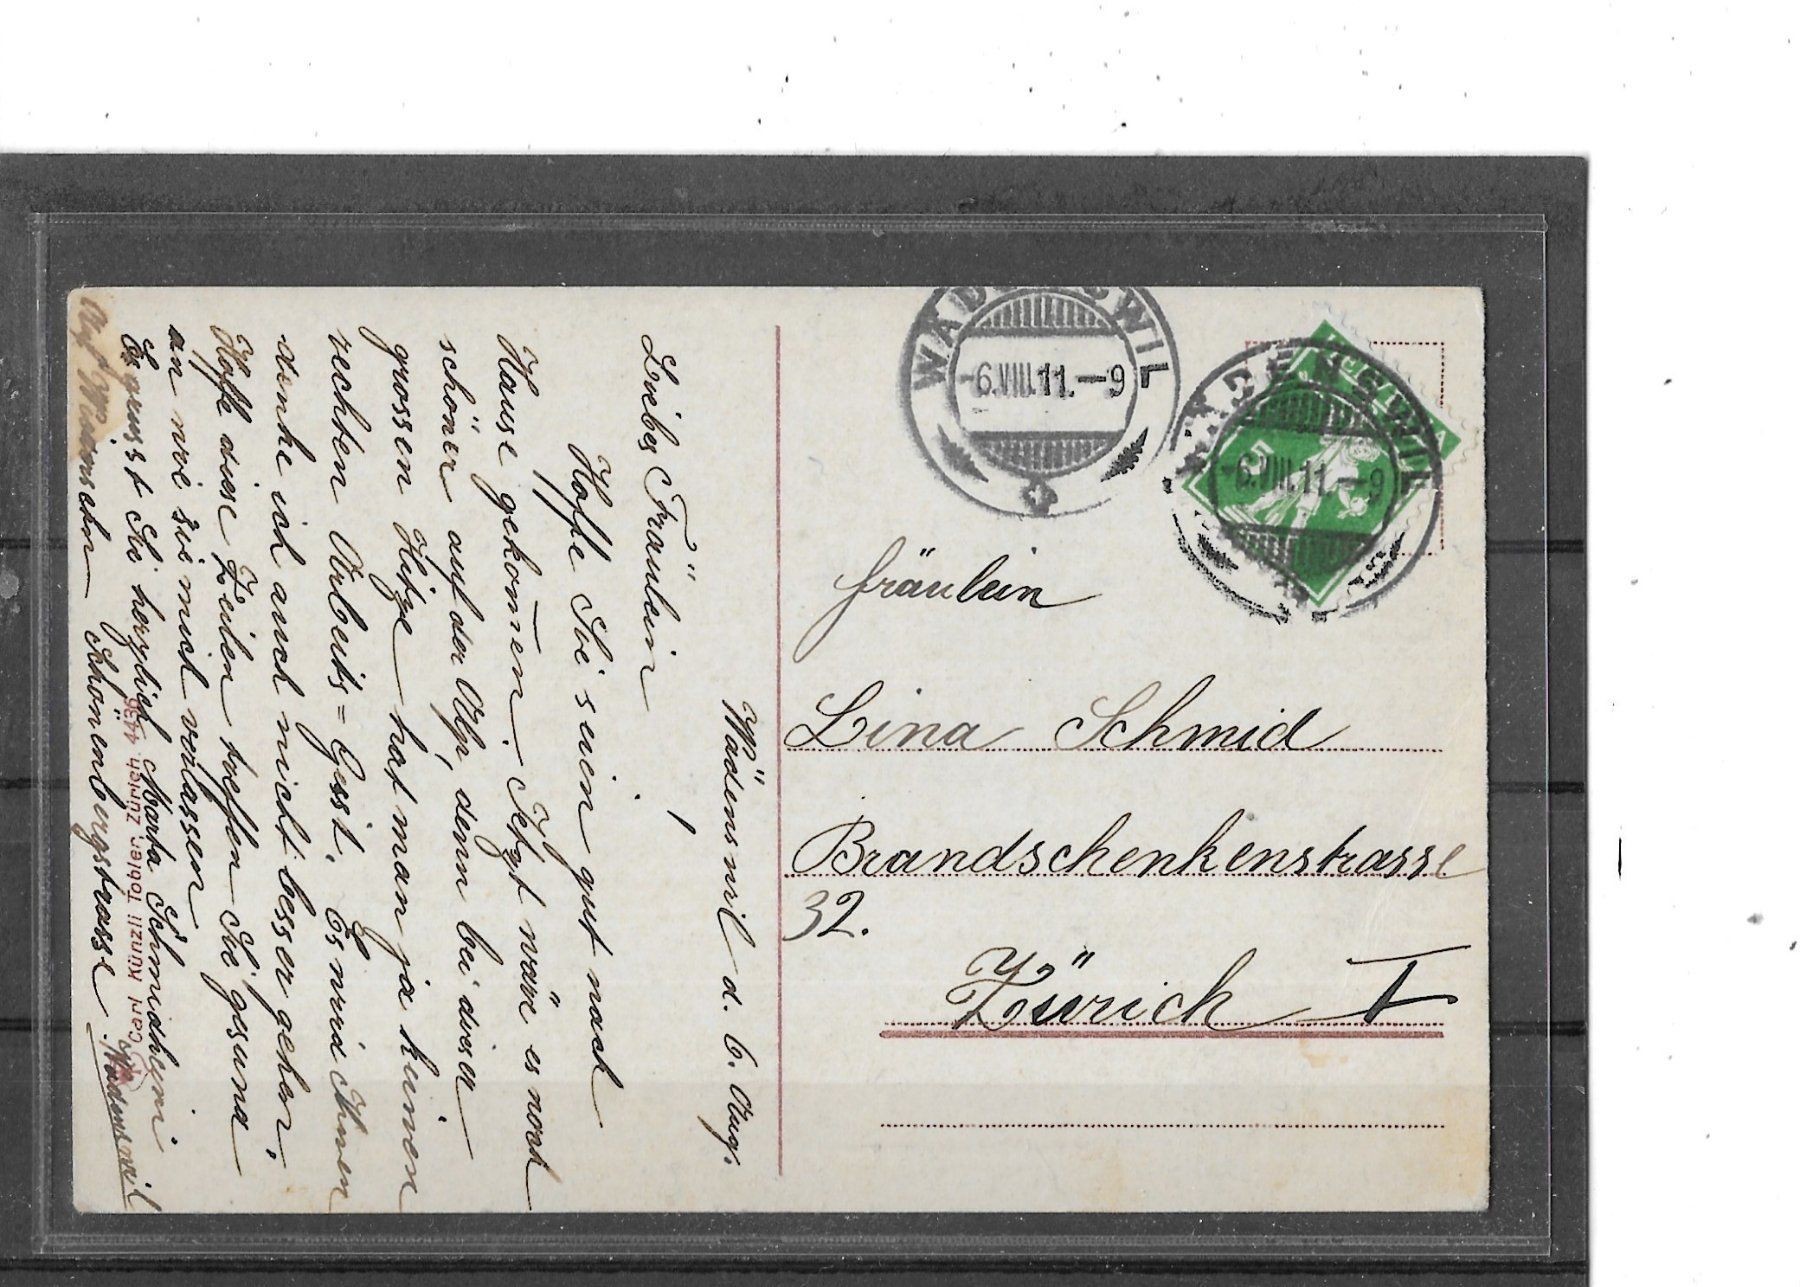 Wädenswil d. 6. Aug.
Liebes Fräulein
Hoffe Sie seien gut nach
Hause gekom̄en. Jetzt wäre es noch
schöner auf der Alp, denn bei dieser
grossen Hitze hat man ja keinen
rechten Arbeits=Geist. Es wird Ihnen
denke ich auch nicht besser gehen.
Hoffe diese Zeilen treffen Sie gesund
an wie sie mich verlassen
Es grüsst Sie herzlich Marta Schmidheini
Schönenbergstrasse Wädenswil
Carl Künzli Tobler, Zürich
WÄDENSWIL
-6.VIII.11.-9
HELVETIA
5
WÄDENSWIL
-6.VIII.11.-9
Fräulein
Lina Schmid
Brandschenkenstrasse
32.
Zürich I